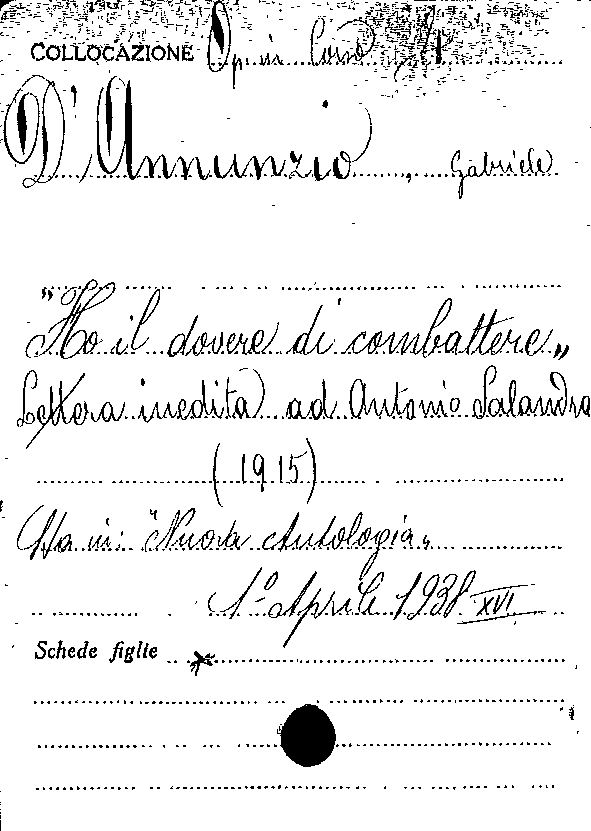 COLLOCAZIONE Op. in Cons
D'Annunzio, Gabriele
"Ho il dovere di combattere„
Lettera inedita ad Antonio Salandra
(1915)
Sta in: "Nuova Antologia„
1º Aprile 1938 XVI
Schede figlie